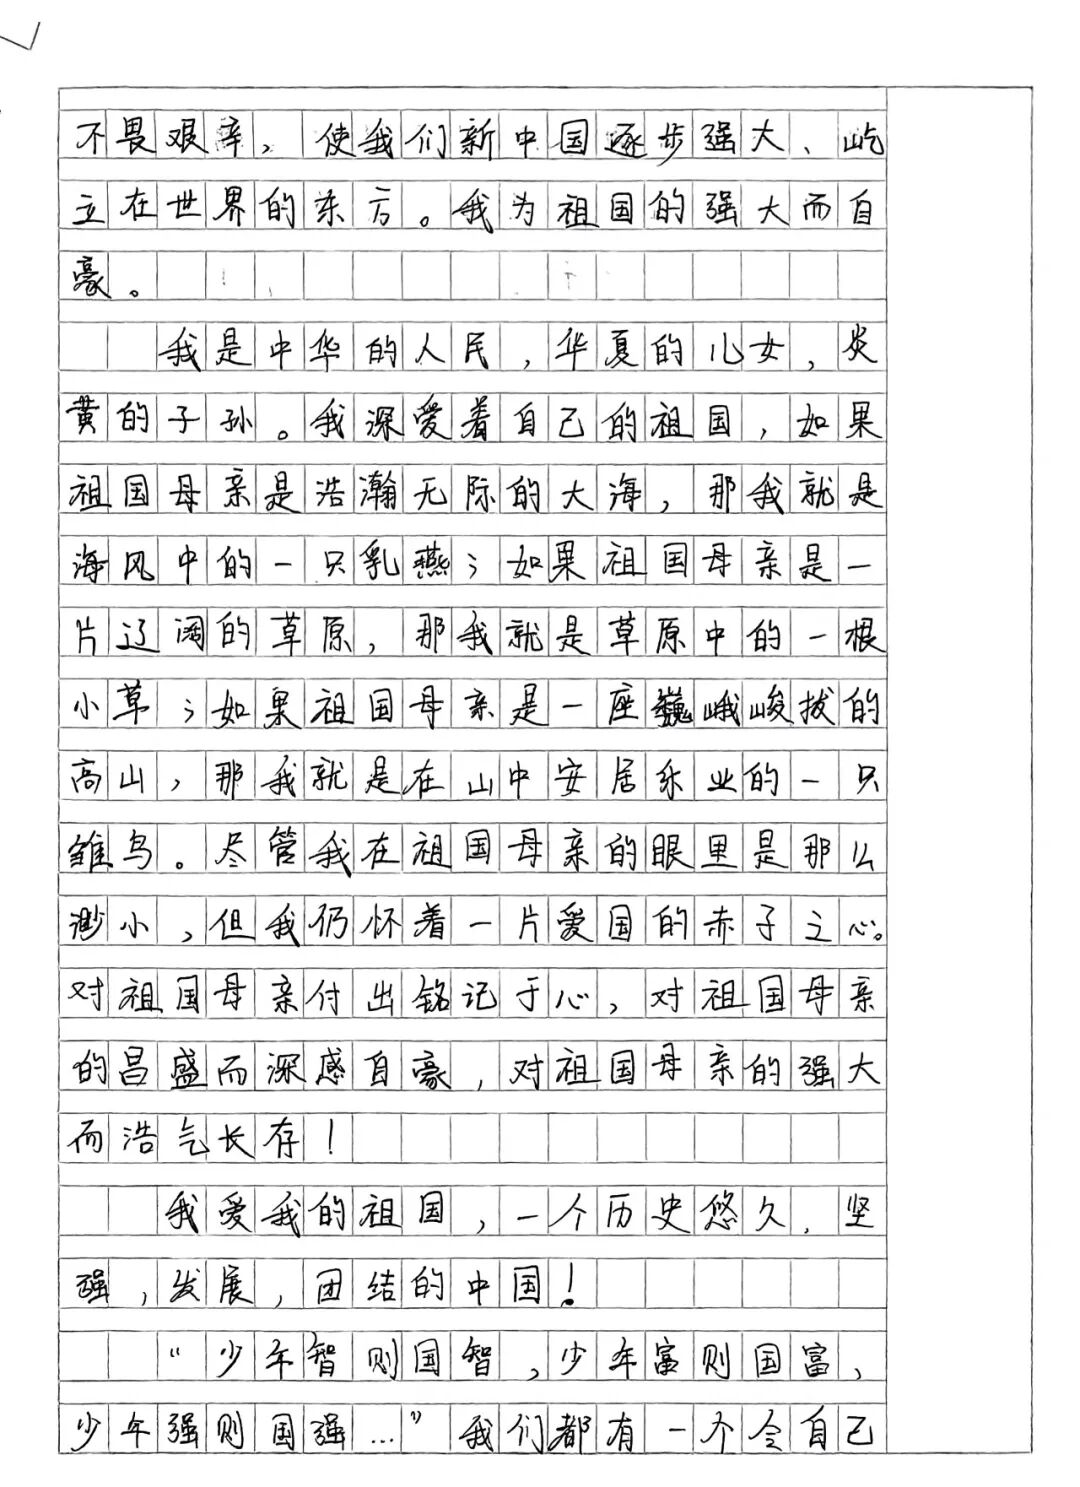 不畏艰辛，使我们新中国逐步强大、屹
立在世界的东方。我为祖国的强大而自
豪。
我是中华的人民，华夏的儿女，炎
黄的子孙。我深爱着自己的祖国，如果
祖国母亲是浩瀚无际的大海，那我就是
海风中的一只乳燕；如果祖国母亲是一
片辽阔的草原，那我就是草原中的一根
小草；如果祖国母亲是一座巍峨峻拔的
高山，那我就是在山中安居乐业的一只
雏鸟。尽管我在祖国母亲的眼里是那么
渺小，但我仍怀着一片爱国的赤子之心。
对祖国母亲付出铭记于心，对祖国母亲
的昌盛而深感自豪，对祖国母亲的强大
而浩气长存！
我爱我的祖国，一个历史悠久，坚
强，发展，团结的中国！
“少年智则国智，少年富则国富，
少年强则国强…”我们都有一个令自己